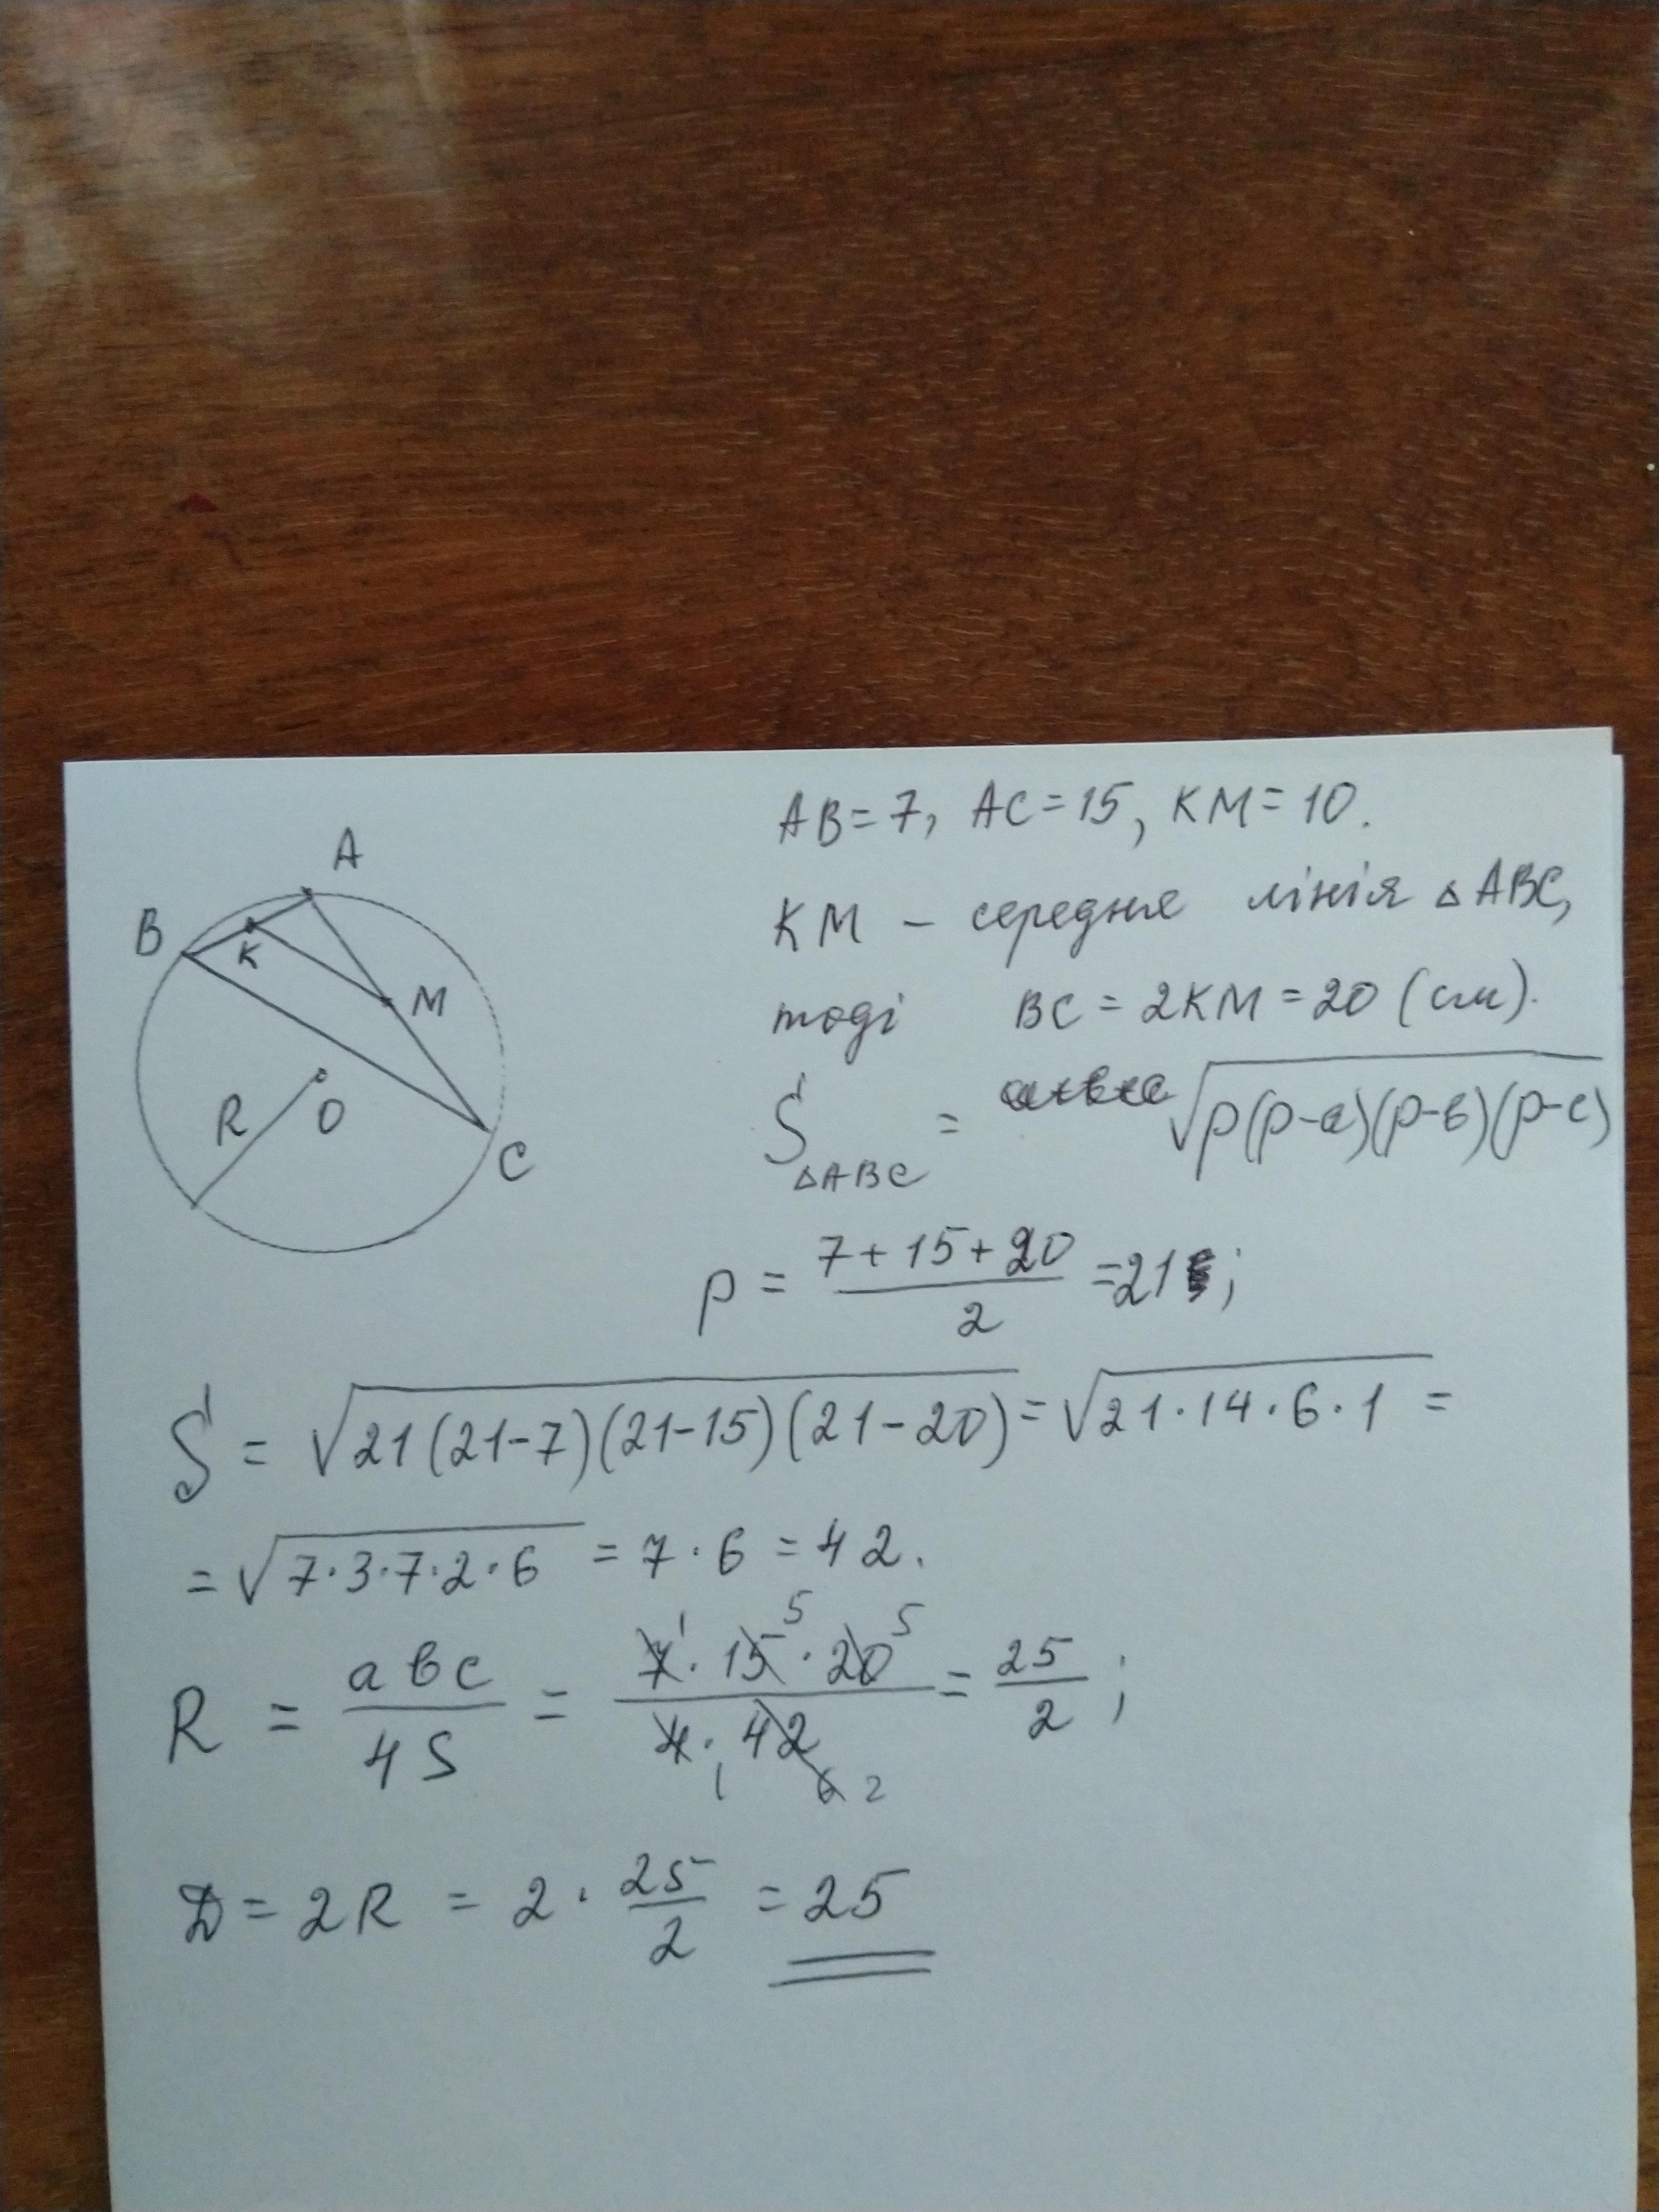 A
B
K
M
R
O
C
AB = 7, AC = 15, KM = 10.
KM – середня лінія △ABC,
тоді BC = 2KM = 20 (см).
S△ABC = √p(p-a)(p-в)(p-c)
p = (7 + 15 + 20)/2 = 21;
S = √21(21-7)(21-15)(21-20) = √21·14·6·1 =
= √7·3·7·2·6 = 7·6 = 42.
R = aвc/4S = 7·15·20/4·42 = 25/2;
1 5 5
1 6 2
D = 2R = 2 · 25/2 = 25